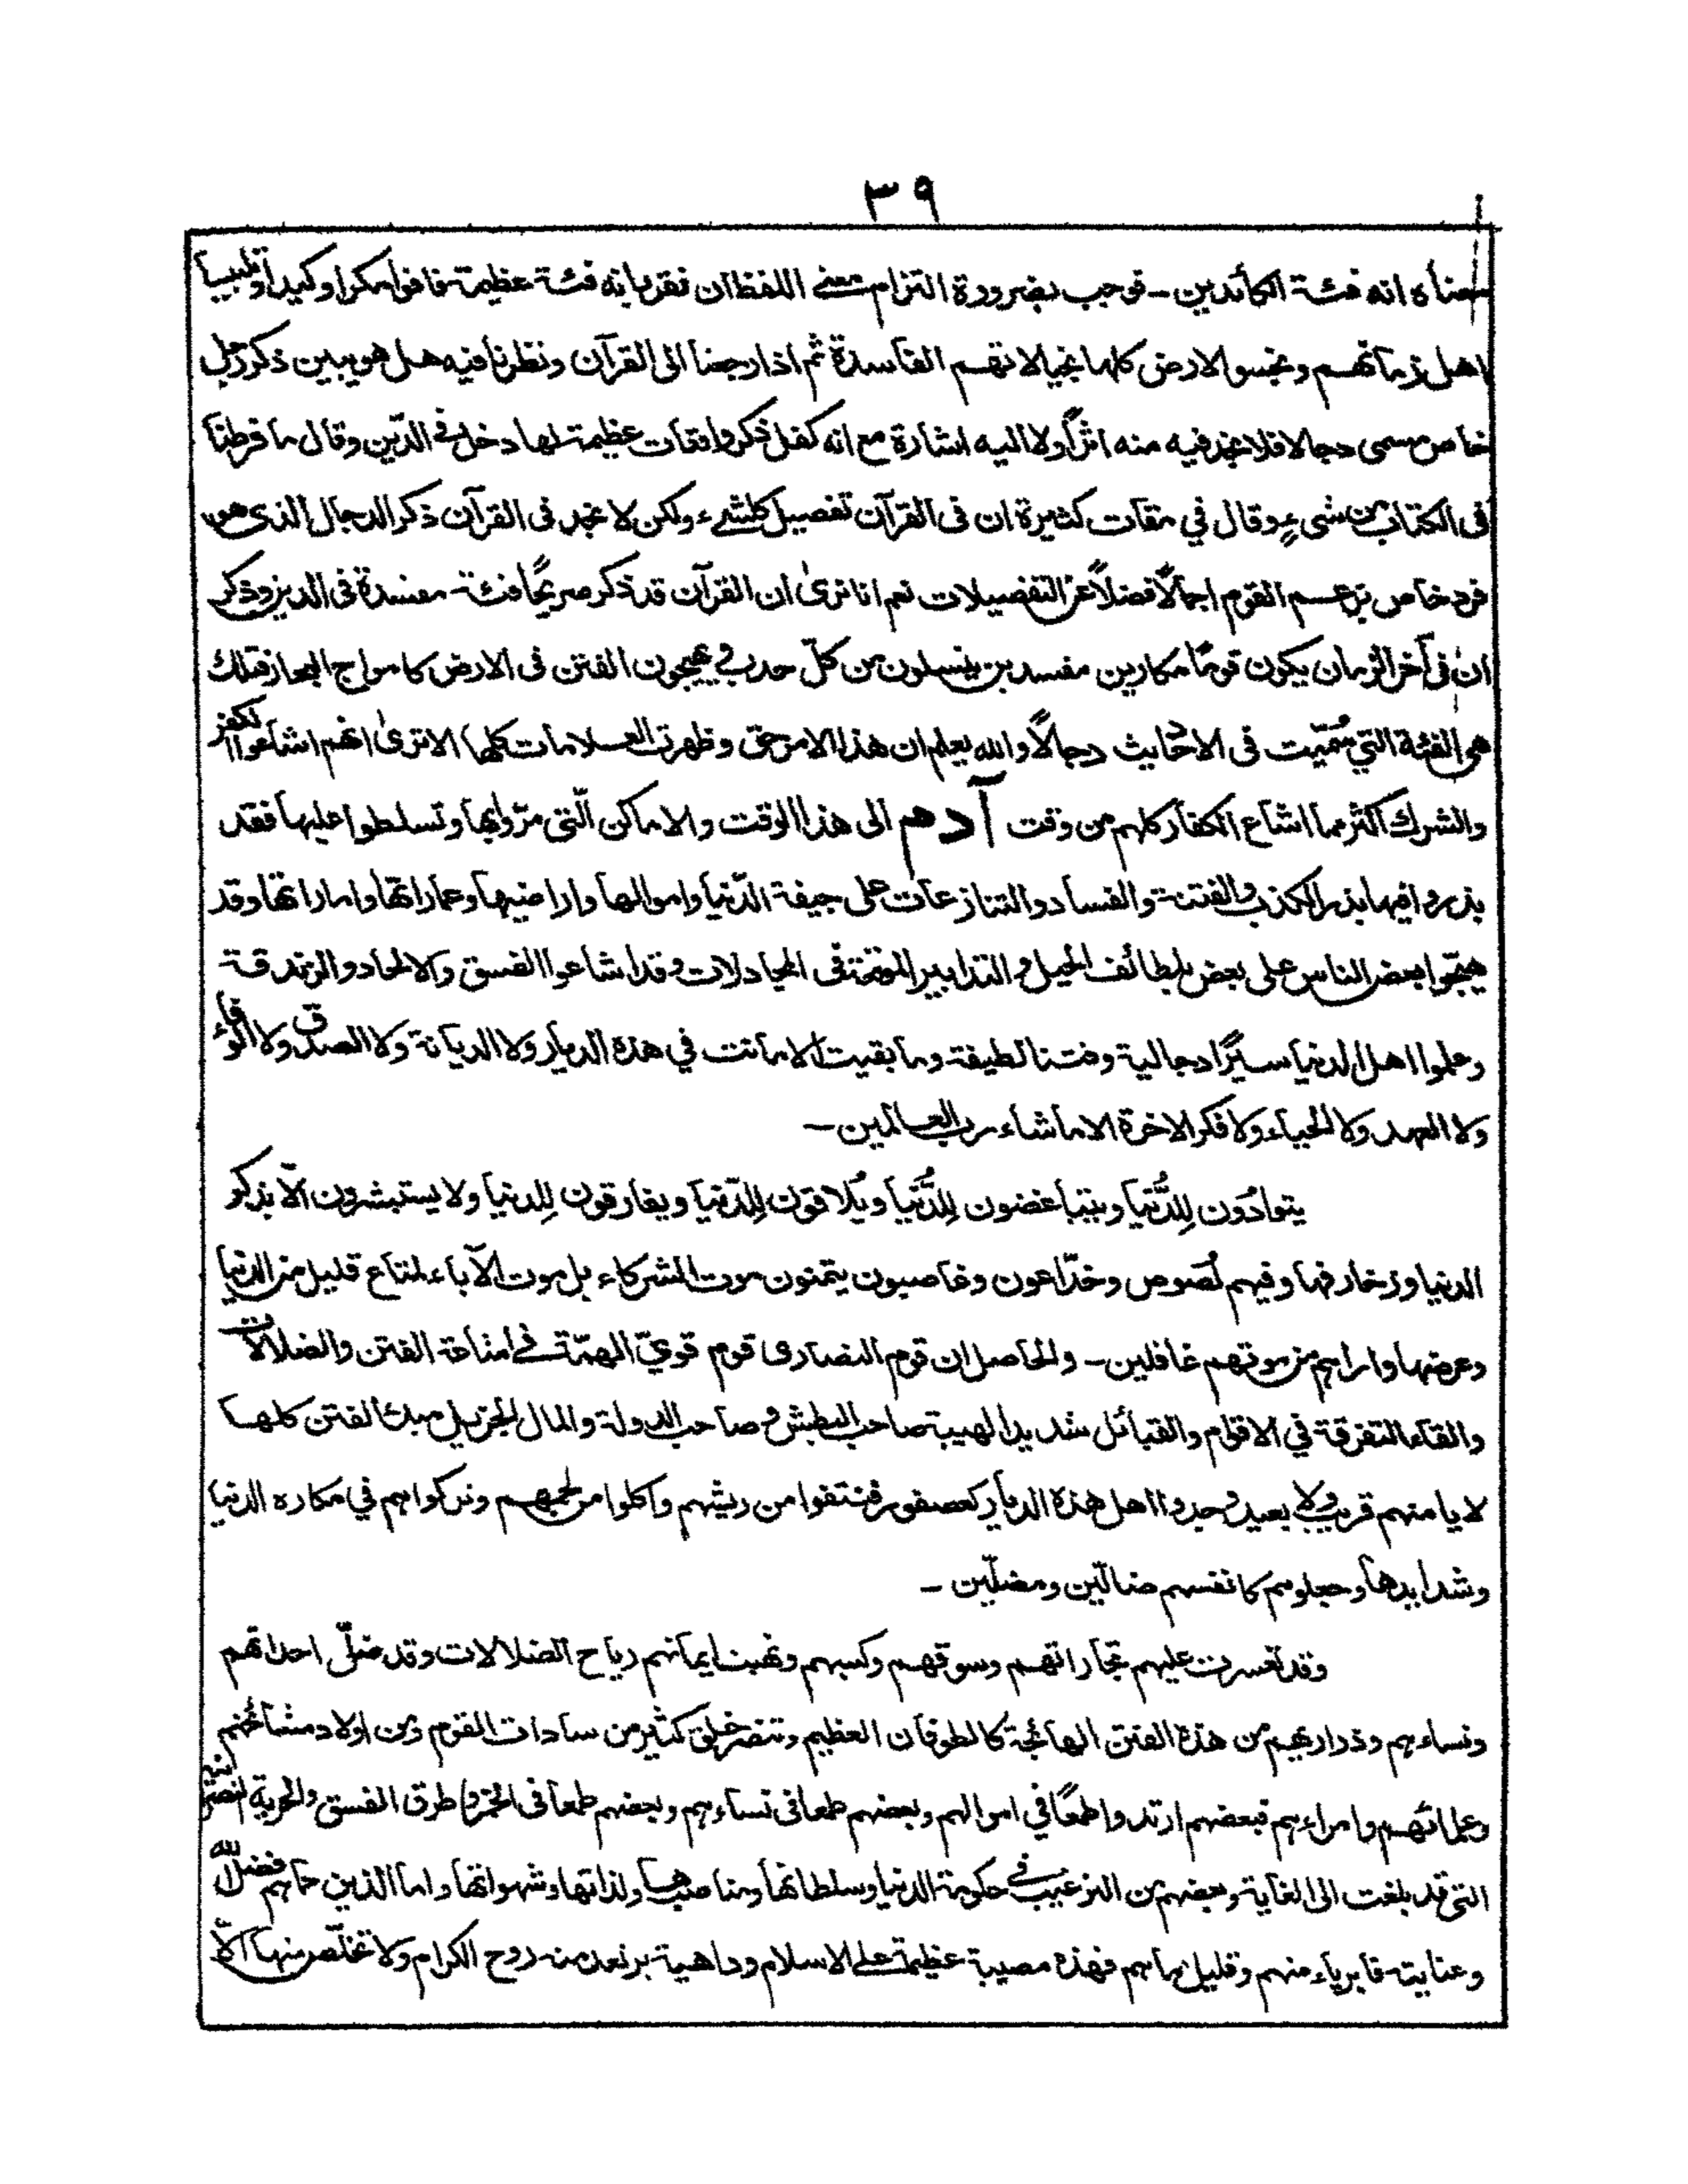 ٣٩
معناه انه فئة الكائدين - فوجب بضرورة التزام معنى اللفظ ان نقر بانه فئة عظيمة فاقوا مكرا وكيدا وتلبيسا
اهل زمانهم ونجسو الارض كلها بخيالاتهم الفاسدة ثم اذا رجعنا الى القرآن ونظرنا فيه هل هو يبين ذكر رجل
خاص مسمى دجالا فلا نجد فيه منه اثرًا ولا اليه اشارة مع انه كفل ذكر واقعات عظيمة لها دخل فى الدّين وقال ما فرطنا
فى الكتاب من شىءٍ وقال في مقات كثيرة ان فى القرآن تفصيل كلشىء ولكن لا نجد فى القرآن ذكر الدجال الذى هو
فرد خاص بزعم القوم اجمالًا فضلًا عن التفصيلات نعم انا نرىٰ ان القرآن قد ذكر صريحًا فئة مفسدة فى الدين وذكر
ان فى آخر الزمان يكون قومًا مكارين مفسدين ينسلون من كلّ حدب ويهيجون الفتن فى الارض كامواج البحار فتلك
هى الفئة التي سُمّيت فى الاحاديث دجالًا والله يعلم ان هذا الامر حق وظهرت العلامات كلها الا ترىٰ انهم اشاعوا الكفر
والشرك اكثر مما اشاع الكفار كلهم من وقت آدم الى هذا الوقت والاماكن الّتى مرّوا بها وتسلطوا عليها فقد
بذروا فيها بذر الكذب والفتنة والفساد والتنازعات على جيفة الدّنيا واموالها واراضيها وعماراتها واماراتها وقد
هيّجوا بعض الناس على بعض بلطائف الحيل والتدابير الموقعة فى المجادلات وقد اشاعوا الفسق والالحاد والزندقة
وعلموا اهل الدنيا سيرًا دجالية وفتنا لطيفة وما بقيت الامانت في هذه الديار ولا الديانة ولا الصدق ولا الوفا
ولا العهد ولا الحياء ولا فكر الاخرة الا ما شاء رب العالمين -
يتوادّون للدُّنيا ويتباغضون للدُّنيا ويُلاقون للدّنيا ويفارقون للدنيا ولا يستبشرون الّا بذكر
الدنيا وزخارفها وفيهم لصُوص وخدّاعون وغاصبون يتمنون موت الشركاء بل موت الآباء لمتاع قليل من الدنيا
وعرضها واراهم من موتهم غافلين - والحاصل ان قوم النصارى قوم قويّ الهمّة فى اشاعة الفتن والضلالات
والقاء التفرقة في الاقوام والقبائل شديد الهيبة صاحب البطش وصاحب الدولة والمال الجزيل مبدء الفتن كلها
لا يامنهم قريب ولا بعيد وجدوا اهل هذه الديار كعصفور فنتفوا من ريشهم واكلوا من لحمهم وتركواهم في مكاره الدنيا
وشدايدها وجعلوهم كانفسهم ضالّين ومضلّين -
وقد تعسرت عليهم تجاراتهم وسوقهم وكسبهم ونهبت ايمانهم رياح الضلالات وقد ضلّى احداثهم
ونساءهم وذراريهم من هذه الفتن الهائجة كالطوفان العظيم وتنصر خلق كثير من سادات القوم ومن اولاد مشائخهم
وعلمائهم وامراءهم فبعضهم ارتدوا طمعًا في اموالهم وبعضهم طمعا فى نساءهم وبعضهم طمعا فى الخمر وطرق الفسق والحرية النصرانية
التى قد بلغت الى الغاية وبعضهم من الترغيب فى حكومة الدنيا وسلطانها ومناصبها ولذاتها وشهواتها واما الذين حماهم فضل الله
وعنايته فابرياء منهم وقليل ما هم فهذه مصيبة عظيمة على الاسلام وداهية يرتعد منه روح الكرام ولا تخلّص منها الّا